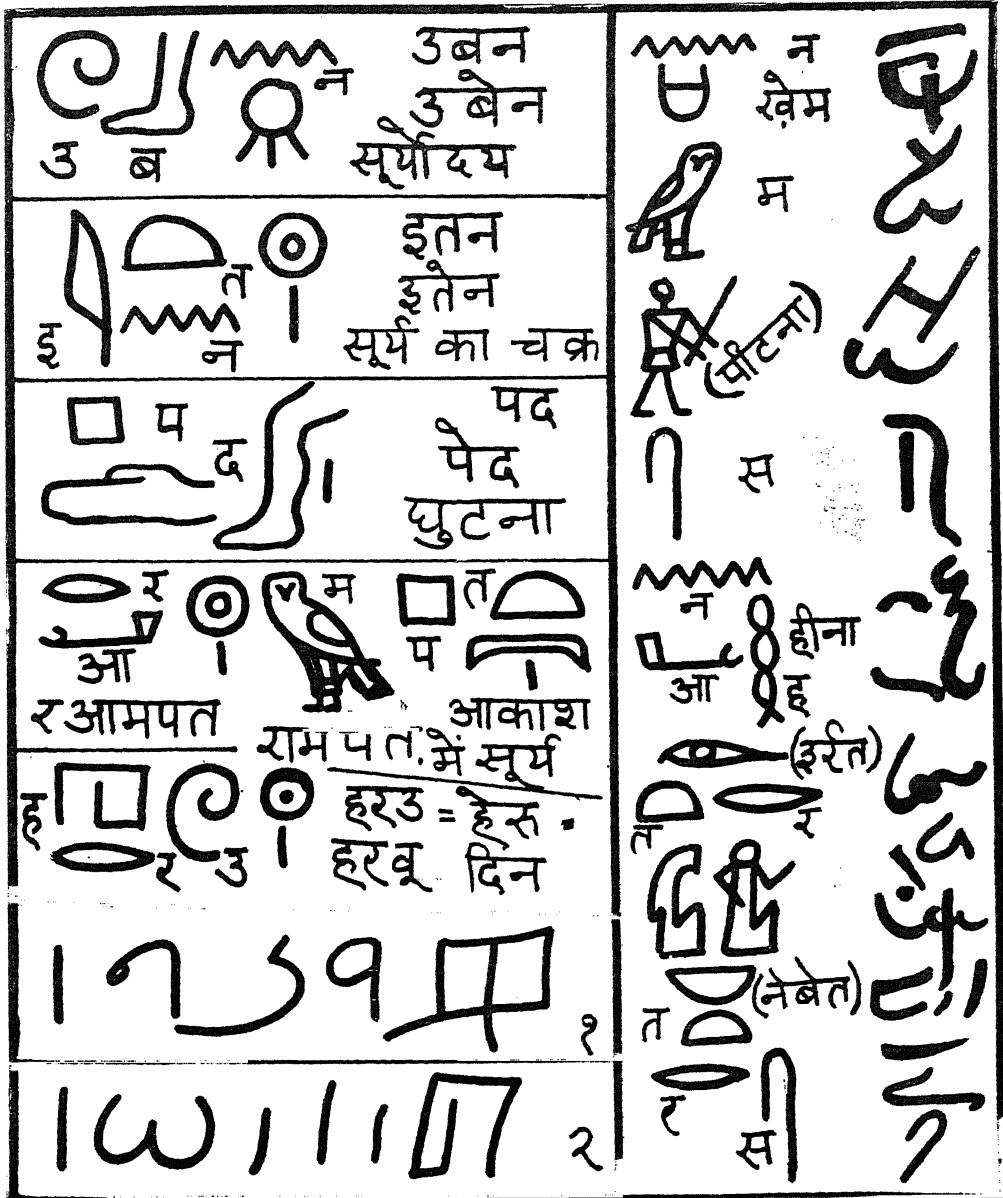 उबन
न
उबेन
उ ब सूर्योदय
इतन
त
इतेन
इ न सूर्य का चक्र
प पद
द पेद
घुटना
र म त
आ प
रआमपत आकाश
रामपत. में सूर्य
ह हरउ = हेरु .
र उ हरवू दिन
१
२
न
ख़ेम
म
(पीटना)
स
न हीना
आ ह
(इर्रत)
त र
(नेबेत)
त
र
स